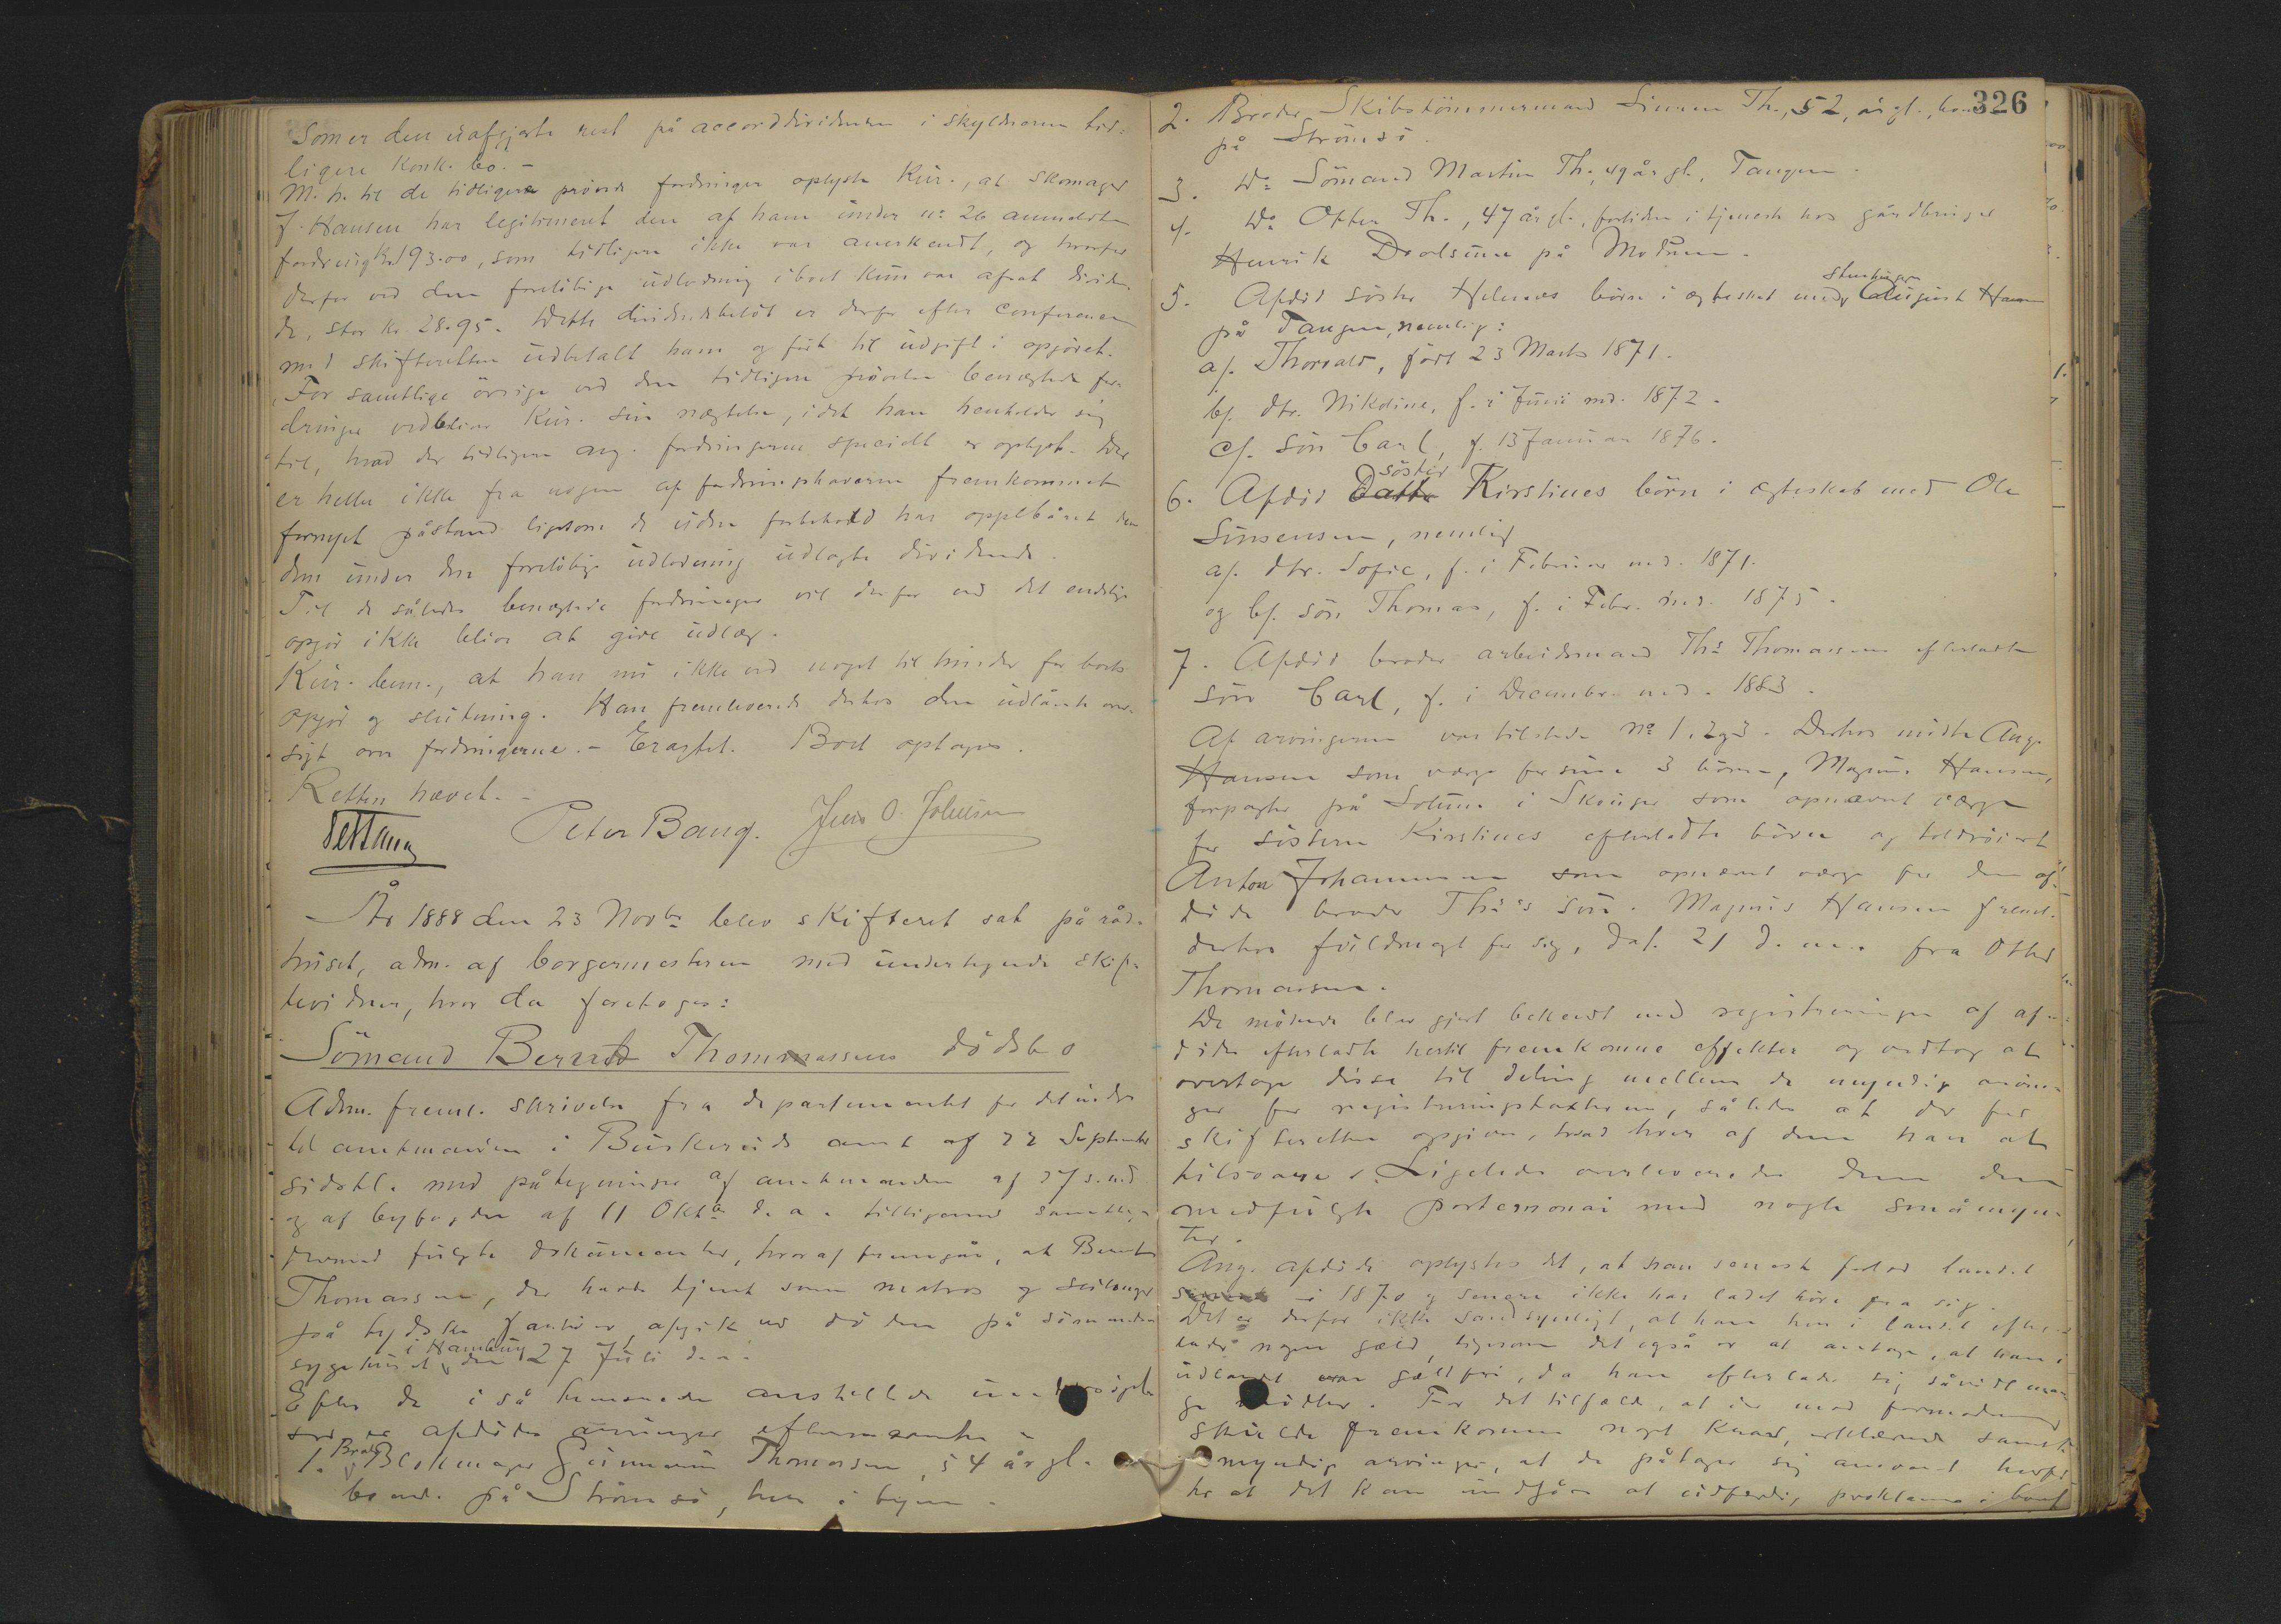 Som er den uafgjorte rest på accorddividenden i skyldnerens tid-
ligere Konk. bo. -
M. h. til de tidligere prøvede fordringer oplyste Kur., at skomager
J. Hansen har legitimeret den af ham under nr 26 anmeldte
fordring Kr 193.00, som tidligere ikke var anerkendt, og hvorfor
derfor ved den foreløbige udlodning i boet kun var afsat dividen-
de, stor kr. 28.95. Dette dividendebeløb er derfor efter conference
med skifteretten udbetalt ham og ført til udgift i opgjøret.
For samtlige øvrige ved den tidligere prøvelse benægtede for-
dringer vedbliver Kur. sin nægtelse, idet han henholder sig
til, hvad der tidligere ang. fordringerne specielt er oplyst. Der
er heller ikke fra nogen af fordringshaverne fremkommet
fornyet påstand ligesom de uden forbehold har oppebåret den
dem under den foreløbige udlodning udlagte dividende.
Til de således benægtede fordringer vil derfor ved det endelige
opgjør ikke blive at give udlæg.
Kur. bem., at han nu ikke ved noget til hinder for boets
opgjør og slutning. Han fremleverede derhos den udlånte over-
sigt over fordringerne. - Eragtet. Boet optages.
Retten hævet. -
Peter Bang. Jens O. Johnsen
År 1888 den 23 Novbr blev skifteret sat på råd-
huset, adm. af borgermesteren med undertegnede skif-
tevidner, hvor da foretoges:
Sömand Bernt Thommassens dödsbo
Adm. freml. skrivelse fra departementet for det indre
til amtmanden i Buskeruds amt af 22 September
sidstl. med påtegninger af amtmanden af 27 s. md
og af byfogden af 11 Oktbr d. a. tilligemed samtlige
dermed fulgte dokumenter, hvoraf fremgår, at Bernt
Thomassen, der havde tjent som matros og
på tydske fartöier afgik ved döden på sömands
sygehuset i Hamburg den 27 Juli d. a.
Efter de i så henseende anstillede undersögelser
er afdödes arvinger efternævnte:
1. Broder Blokmager Gunerius Thomassen, 54 år gl.
boende på Strömsö, her i byen.
326
2. Broder Skibstömmermand Simen Th., 52 år gl., boende
på Strömsö.
3. Do Sömand Martin Th., 49 år gl., Tangen.
4. Do Otter Th., 47 år gl., fortiden i tjeneste hos gårdbruger
Henrik på Modum.
5. Afdöd söster Helenes börn i ægteskab med August Hansen
på Tangen, nemlig:
a/. Thorvald, födt 23 Marts 1871.
b/. dtr. Nikoline, f. i Juni md. 1872.
c/. Sön Carl, f. 13 Januar 1876.
6. Afdöd Datter söster Kirstines börn i ægteskab med Ole
Simensen, nemlig
a/. dtr. Sofie, f. i Februar md. 1871.
og b/. sön Thomas, f. i Febr. md. 1875.
7. Afdöd broder arbeidsmand Ths Thomassens efterladte
sön Carl, f. i December md. 1883.
Af arvingerne var tilstede No 1, 2 og 3. Derhos mödte Aug.
Hansen som værge for sine 3 börn, Magnus Hansen,
forpagter på Solum i Skouger som opnævnt værge
for sösteren Kirstines efterladte börn og toldröiert
Anton Johannesen som opnævnt værge for den af-
döde broder Ths's sön. Magnus Hansen freml.
derhos fuldmagt for sig, dat. 21 d. m. fra Otter
Thomassen.
De mödende blev gjort bekendt med registreringen af af-
dödes efterladte hertil fremkomne effekter og vedtog at
overtage disse til deling mellem de myndige arvin-
ger for registreringstaxterne, således at de for
skifteretten opgiver, hvad hver af dem har at
tilsvare. Ligeledes overleveredes dem den
medfulgte portemonai med nogle småmyn-
ter.
Ang. afdöde oplystes det, at han senest forlod landet
i 1870 og senere ikke har ladet höre fra sig.
Det er derfor ikke sandsynligt, at han her i landet efter-
lader nogen gæld, ligesom det også er at antage, at han i
udlandet var gældfri, da han efterlader sig såvidt man-
ge midler. For det tilfælde, at der mod formodning
skulde fremkomme noget Krav, erklærede samtl.
myndige arvinger, at de påtager sig ansvaret herfor
så at det kan undgåes at udfærdige proklama i boet